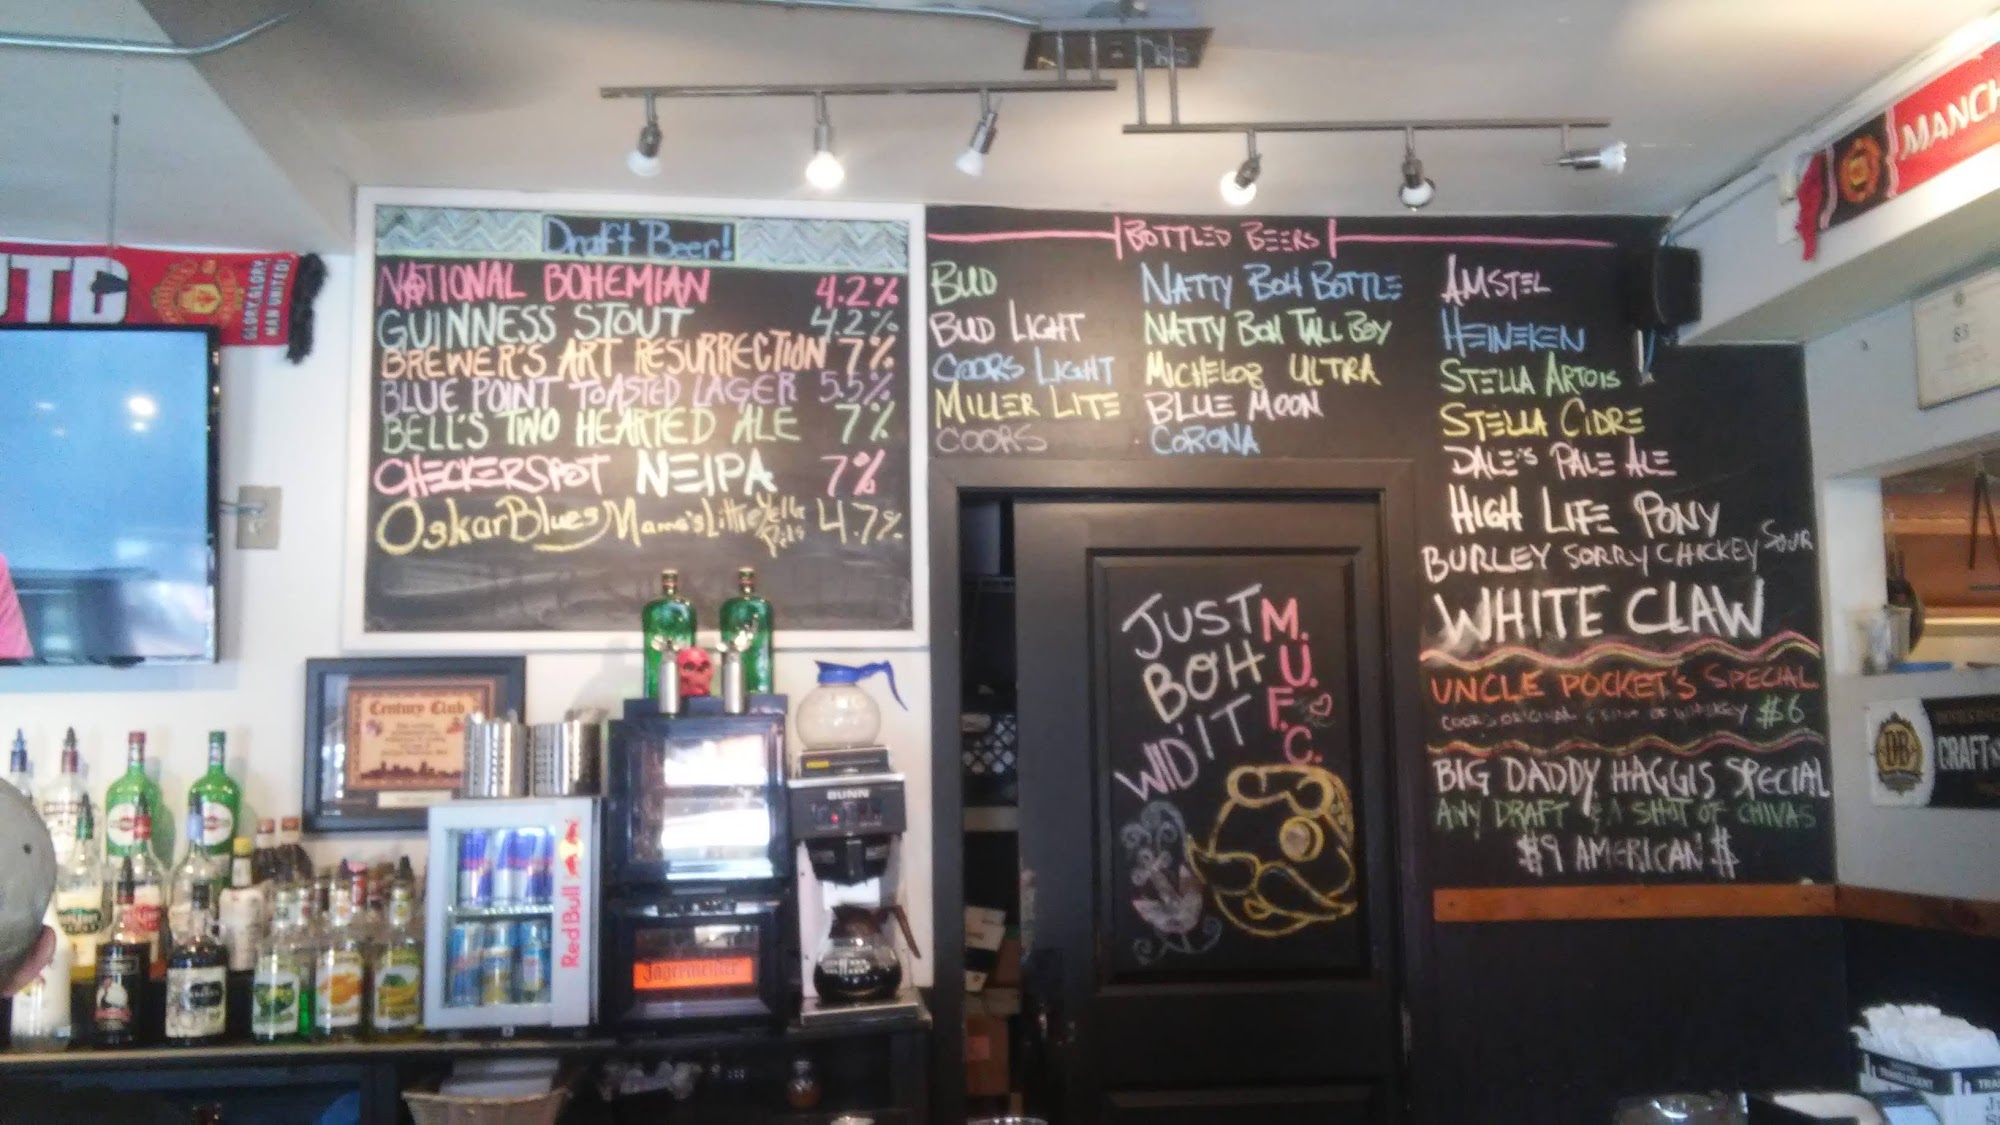 UTD
GLORY, GLORY,
MAN UNITED!
MANCH
Draft Beer!
NATIONAL BOHEMIAN 4.2%
GUINNESS STOUT 4.2%
BREWER'S ART RESURRECTION 7%
BLUE POINT TOASTED LAGER 5.5%
BELL'S TWO HEARTED ALE 7%
CHECKERSPOT NEIPA 7%
Oskar Blues Mama's Little Yella Pils 4.7%
BOTTLED BEERS
BUD
BUD LIGHT
COORS LIGHT
MILLER LITE
COORS
NATTY BOH BOTTLE
NATTY BOH TALL BOY
MICHELOB ULTRA
BLUE MOON
CORONA
AMSTEL
HEINEKEN
STELLA ARTOIS
STELLA CIDRE
DALE'S PALE ALE
HIGH LIFE PONY
BURLEY SORRY CHICKEY SOUR
WHITE CLAW
UNCLE POCKET'S SPECIAL
COORS ORIGINAL & SHOT OF WHISKEY $6
BIG DADDY HAGGIS SPECIAL
ANY DRAFT & A SHOT OF CHIVAS
$9 AMERICAN $
JUST
BOH
WID' IT
M.U.F.C.
Century Club
BUNN
RedBull
Jägermeister
83
DB
CRAFT